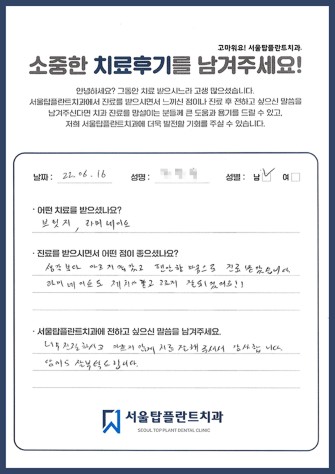 고마워요! 서울탑플란트치과.
소중한 치료후기를 남겨주세요!
안녕하세요? 그동안 치료 받으시느라 고생 많으셨습니다.
서울탑플란트치과에서 진료를 받으시면서 느끼신 점이나 진료 후 전하고 싶으신 말씀을
남겨주신다면 치과 진료를 망설이는 분들께 큰 도움과 용기를 드릴 수 있고,
저희 서울탑플란트치과에 더욱 발전할 기회를 주실 수 있습니다.
날짜 : 22. 06. 16 성명 : 성별 : 남 여
· 어떤 치료를 받으셨나요?
브릿지, 라미네이트
· 진료를 받으시면서 어떤 점이 좋으셨나요?
생각보다 아프지 않았고 편안한 마음으로 진료 받았습니다
라미네이트도 잘되었어요!!
· 서울탑플란트치과에 전하고 싶으신 말씀을 남겨주세요.
너무 친절하시고 치료 잘해주셔서 감사합니다.
서울탑플란트치과
SEOUL TOP PLANT DENTAL CLINIC